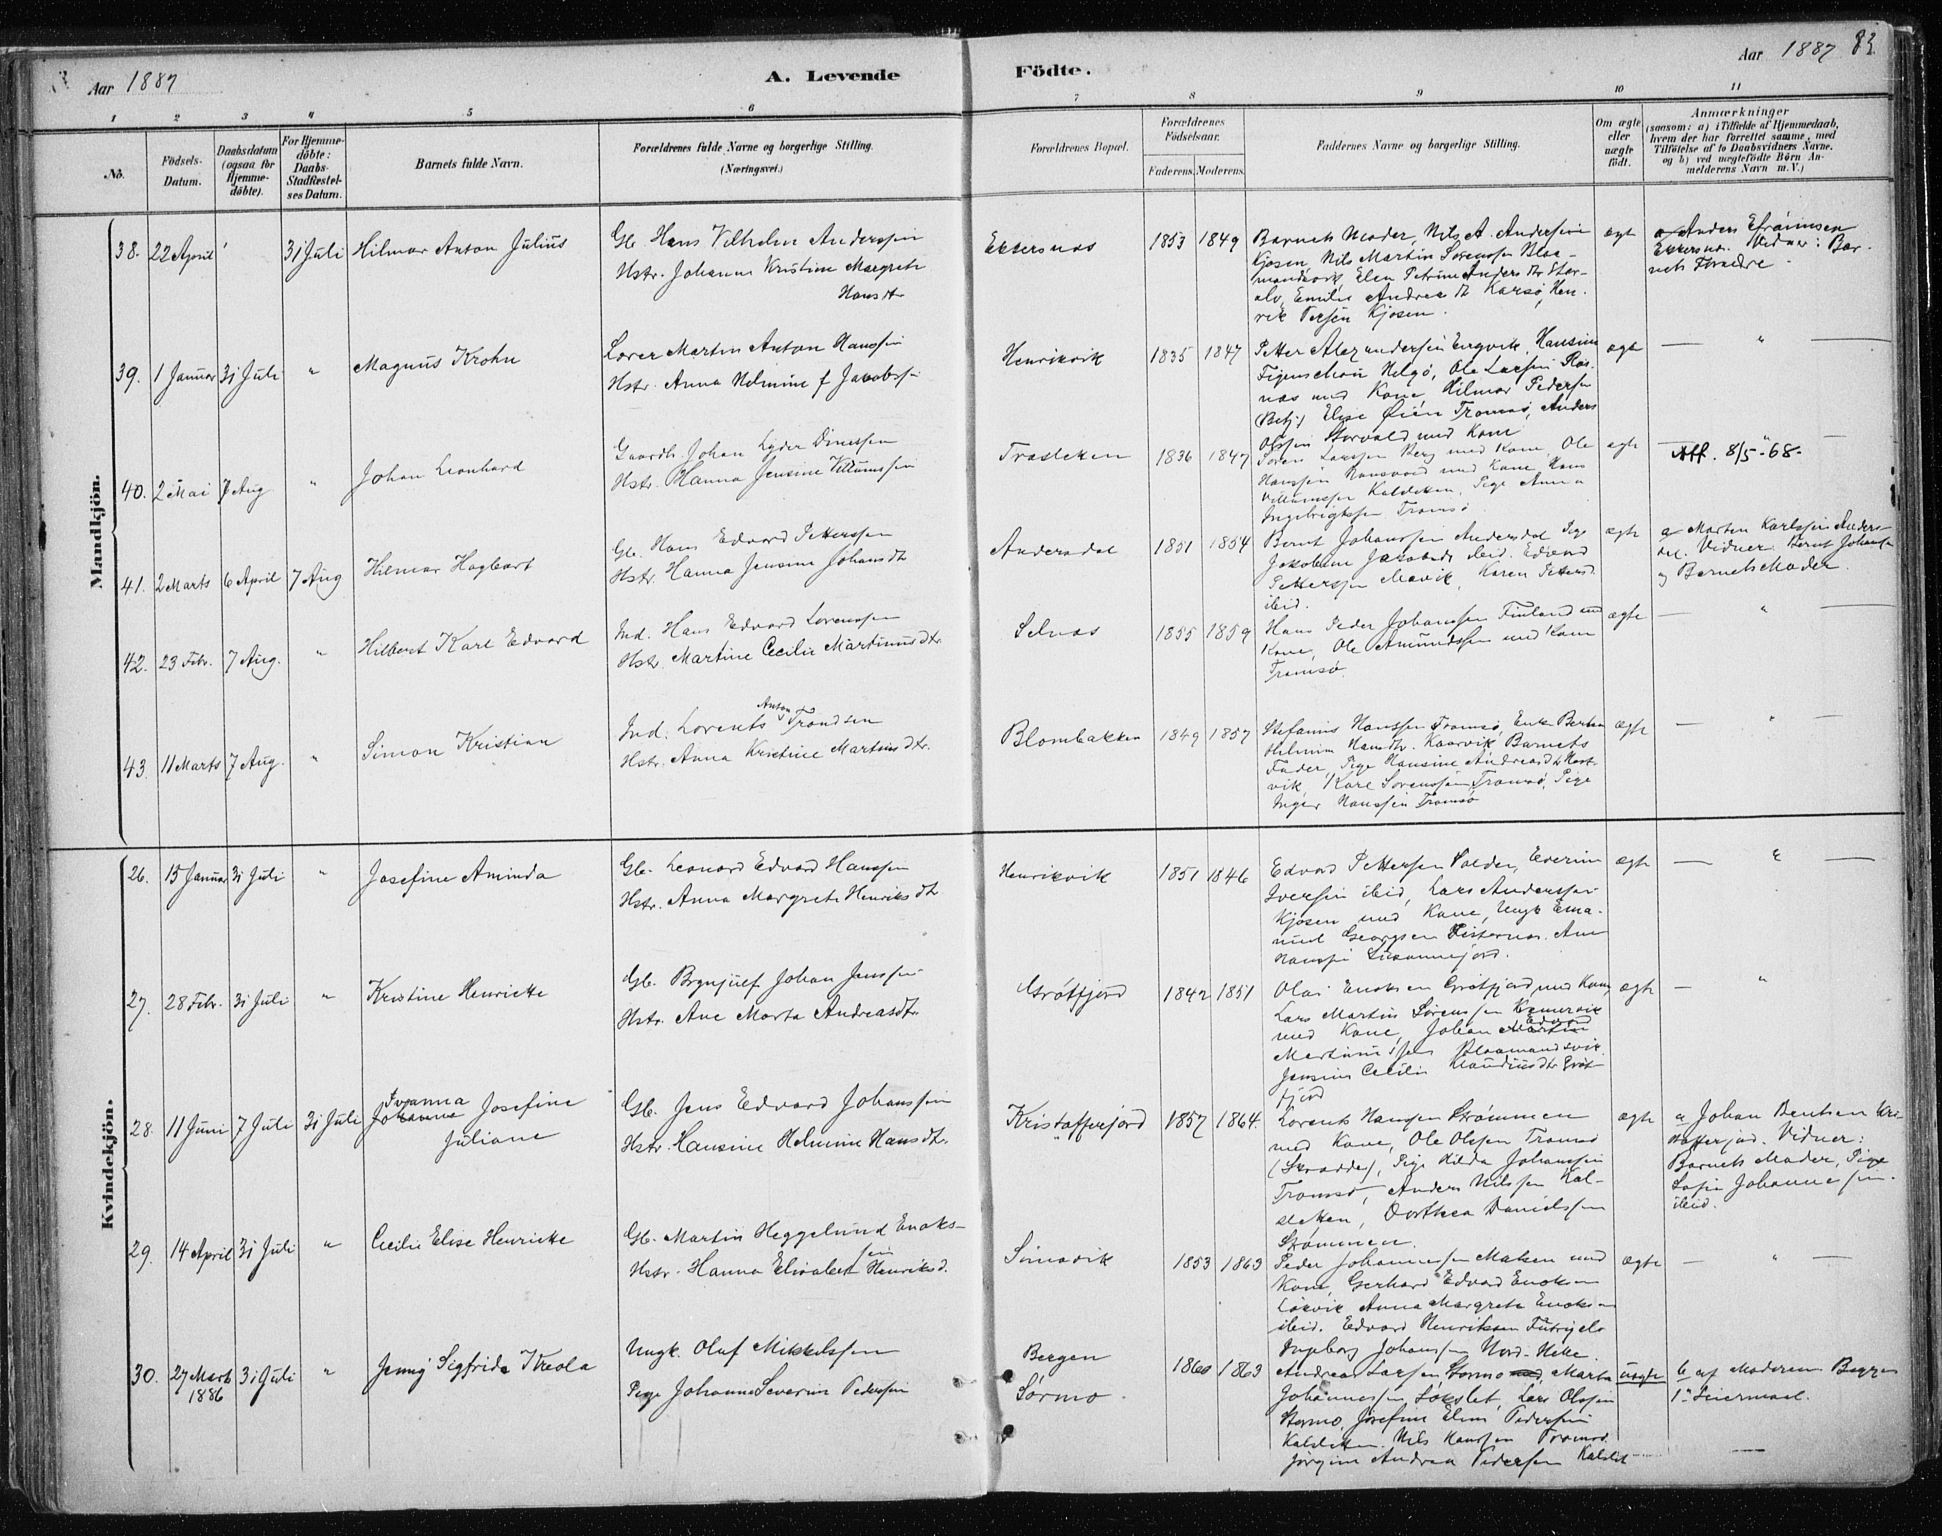 Aar 1887
A. Levende Födte.
Aar 1887 83.
1 2 3 4 5 6 7 8 9 10 11
No.
Födsels-Datum.
Daabsdatum (ogsaa for Hjemme-döbte).
For Hjemme-döbte: Daabs-Stadfestel-ses Datum.
Barnets fulde Navn.
Forældrenes fulde Navne og borgerlige Stilling. (Næringsvei.)
Forældrenes Bopæl.
Forældrenes Födselsaar.
Faderens. Moderens.
Faddernes Navne og borgerlige Stilling.
Om ægte eller uægte födt.
Anmærkninger
(saasom: a) i Tilfælde af Hjemmedaab,
hvem der har forrettet samme, med
Tilföielse af to Daabsvidners Navne.
og b) ved uægtefödte Börn An-
melderens Navn m. V.)
Mandkjön.
38. 22 April 31 Juli Hilmar Anton Julius
Gb. Hans Vilhelm Anderssen
Hstr. Johanna Kristine Margrete
Hansdtr
Ekkersnæs 1853 1849
Barnets Moder, Nils A. Anderssen
Kjosen, Nils Martin Sørenssen Blaa-
mandsvik, Elen Petrine Andersdtr Stor-
alv, Emilie Andreadtr Karsø, Hen-
rik Perssen Kjosen.
ægte
a Anders Efraimsen
Ekkersnæs. Vidner: Bar-
nets Forældre.
39. 1 Januar 31 Juli " Magnus Krohn
Lærer Martin Anton Hanssen
Hstr. Anna Helmine f Jacobsen
Henrikvik 1835 1847
Petter Alexanderssen Engvik, Hansine
Figenschou Helgø, Ole Larssen Ros-
næs med Kone, Hilmar Pederssen
(Betj) Elise Øien Tromsø, Anders
Olssen Storvold med Kone
ægte — " —
40. 2 Mai 7 Aug " Johan Leonhard
Gaardb. Johan Lyder Dinessen
Hstr. Hanna Jensine Villumssen
Træsteken 1836 1847
Søren Larssen Berg med Kone, Ole
Hanssen med Kone, Hans
Villumssen Kaldsleten, Pige Anna
Ingebrigtssen Tromsø
ægte Att. 8/5-68-
41. 2 Marts 6 April 7 Aug Hilmar Hagbart
Gb. Hans Edvard Petterssen
Hstr. Hanna Jensine Johansdtr
Andersdal 1851 1854
Bernt Johanssen Andersdal Pige
Jakobine Jakobsdtr ibid. Edvard
Petterssen Mavik, Karen Pettersd.
ibid.
ægte
a Marten Karlssen Anders-
dal. Vidner: Bernt Johanssen
og Barnets Moder.
42. 23 Febr. 7 Aug. " Hilbert Karl Edvard
Ind. Hans Edvard Lorenssen
Hstr. Martine Cecilie Martinusdtr.
Selnæs 1855 1859
Hans Peder Johanssen Finland med
Kone, Ole Amundssen med Kone
Tromsø.
ægte — " —
43. 11 Marts 7 Aug. " Simon Kristian
Ind. Lorents Anton Trondsen
Hstr. Anna Kristine Martinusdtr.
Blombakken 1849 1857
Stefanus Hanssen Tromsø, Enke Berthea
Helmine Hansdtr. Kaarvik, Barnets
Fader, Pige Hansine Andreasdtr Kaar-
vik, Karl Sørenssen Tromsø, Pige
Inger Hanssen Tromsø
ægte — " —
Kvindekjön.
26. 15 Januar 31 Juli " Josefine Aminda
Gb. Leonard Edvard Hanssen
Hstr. Anna Margrete Henriksdtr
Henrikvik 1851 1846
Edvard Petterssen Solder, Everine
Iverssen ibid, Lars Anderssen
Kjosen med Kone, Ungk Ema-
nuel Georgsen Ane
Hanssen
ægte — " —
27. 28 Febr. 31 Juli " Kristine Henriette
Gb. Brynjulf Johan Jenssen
Hstr. Ane Marta Andreasdtr.
Grøtfjord 1842 1851
Olai Enoksen Grøtfjord med Kone,
Lars Martin Sørenssen
med Kone, Johan Edvard
Martinussen Blaamandsvik.
Jensine Cecilie Klaudiusdtr Grøt-
fjord
ægte — "
28. 11 Juni 7 Juli 31 Juli Ivanna Johanna Josefine
Juliane
Gb. Jens Edvard Johanssen
Hstr. Hansine Helmine Hansdtr.
Kristofferjord 1857 1864.
Lorents Hanssen Strømmen
med Kone, Ole Olssen Tromsø
(Skrædder), Pige Hilda Johanssen
Tromsø, Anders Nilssen Kal-
sletten, Dorthea Danielssen
Strømmen.
ægte
a Johan Bentsen Kri-
stofferjord. Vidner:
Barnets Moder, Pige
Sofie Johannessen.
ibid.
29. 14 April 31 Juli " Cecilie Elise Henriette
Gb. Martin Heggelund Enoks-
sen
Hstr. Hanna Elisabet Henriksd.
Simavik 1853 1863
Peder Johannessen Maken med
Kone, Gerhard Edvard Enoksen
Løkvik, Anna Margrete Enoksen
ibid. Edvard Henriksen Futrijelv
Ingeborg Johanssen Nord-Heke.
ægte — " —
30. 27 Marts 1886 31 Juli " Jenny Sigfride Kreola
Ungk. Oluf Mikkelssen
Pige Johanna Severine Pederssen
Bergen
Sørmo
1860 1863
Andreas Larssen Stormo, Marta
Johannessen Løkslet, Lars Olssen
Stormo, Josefine Eline Pederssen
Kaldsleten. Nils Hanssen Tromsø.
Jørgine Andrea Pederssen Kalslet
uægte
b af Moderen. Begges
1ste Leiermaal.